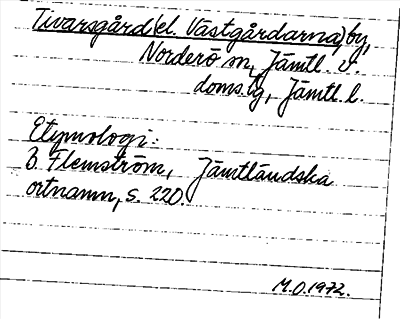 Tivarsgård (el. Västgårdarna) by,
Norderö sn, Jämtl. v.
doms.tg, Jämtl. l.
Etymologi:
B. Flemström, Jämtländska
ortnamn, s. 220.
M.O. 1972.